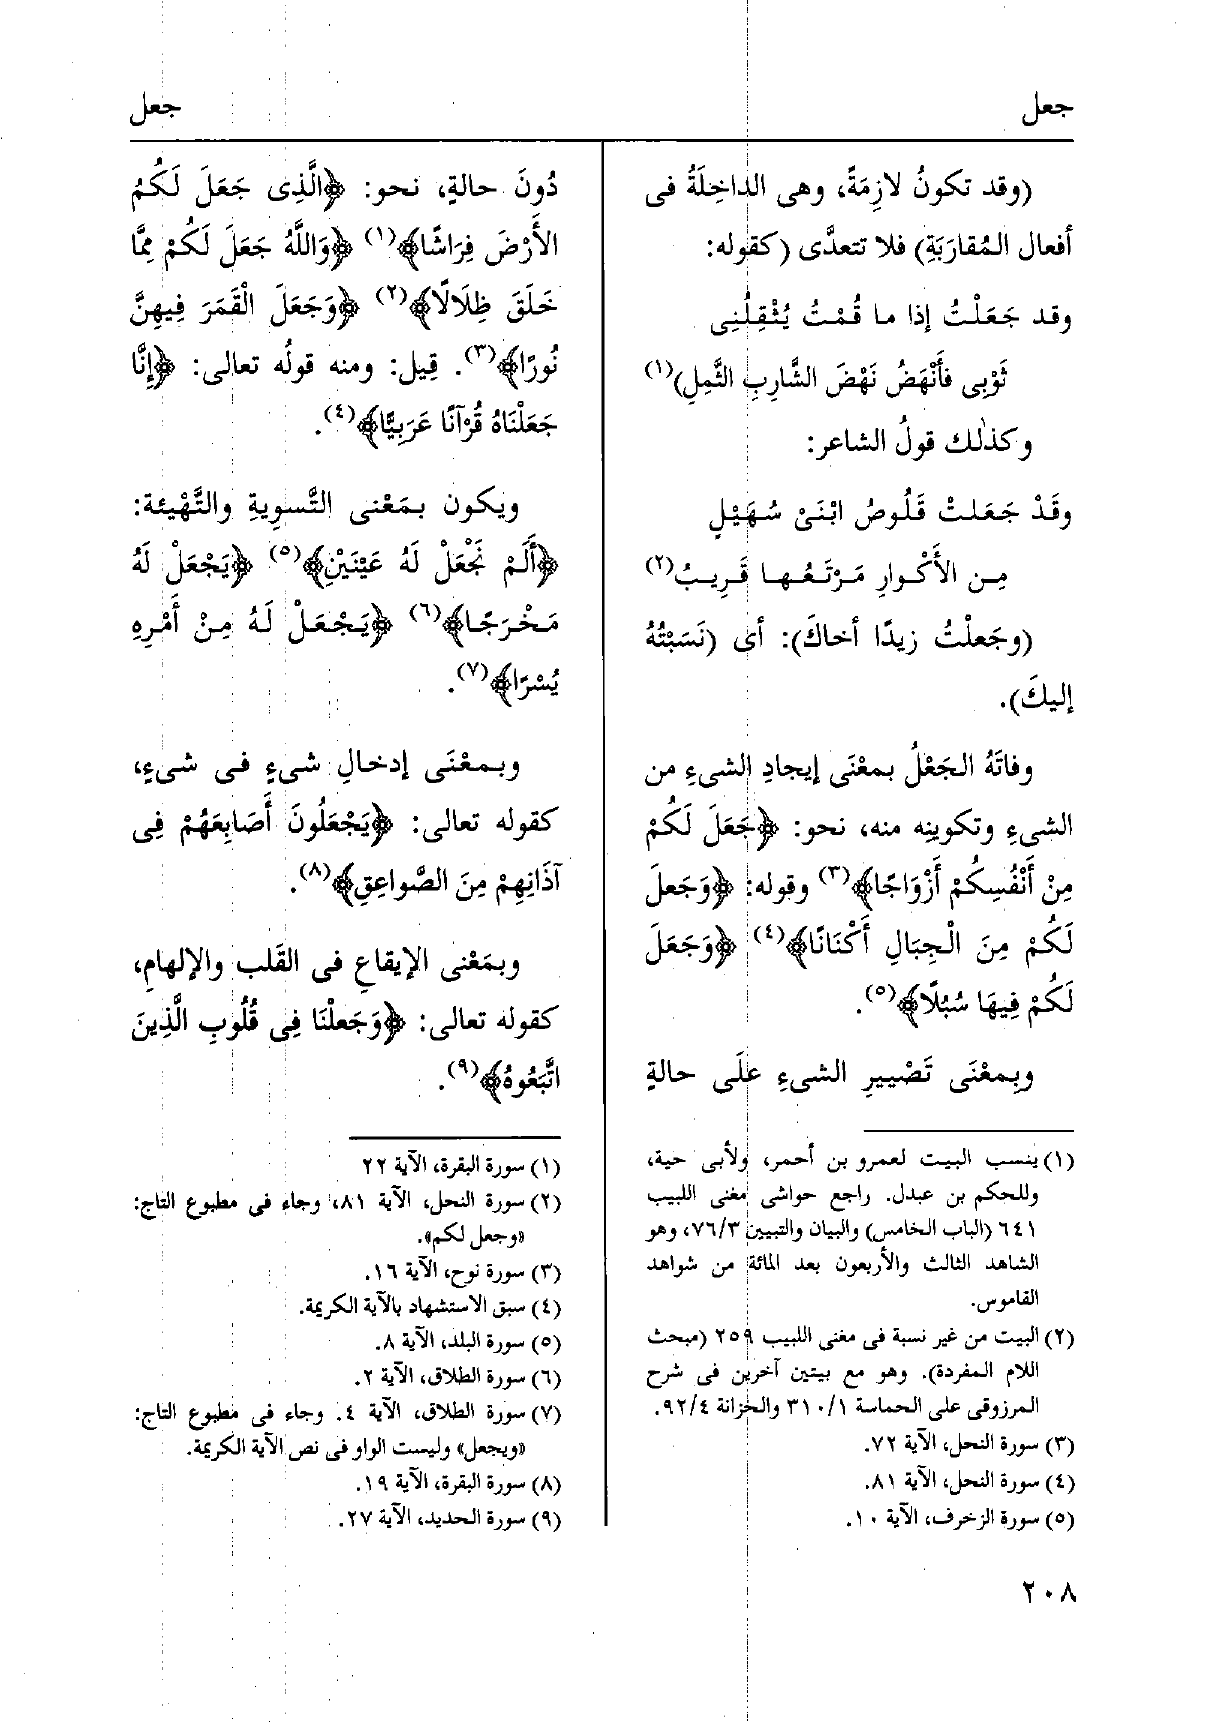 جعل
جعل
(وقد تكونُ لازِمَةً، وهى الداخِلَةُ فى
أفعال المُقارَبَةِ) فلا تتعدَّى (كقوله:
وقد جَعَلْتُ إذا ما قُمْتُ يُثْقِلُنِى
ثَوْبِى فأَنْهَضُ نَهْضَ الشَّارِبِ الثَّمِلِ)(١)
وكذٰلك قولُ الشاعر:
وقَدْ جَعَلتْ قَلُوصُ ابْنَىْ سُهَيْلٍ
مِن الأَكْوارِ مَرْتَعُها قَرِيبُ(٢)
(وجَعلْتُ زيدًا أخاكَ): أى (نَسَبْتُهُ
إليكَ).
وفاتَهُ الجَعْلُ بمعْنَى إيجادِ الشىءِ من
الشىءِ وتكوينِه منه، نحو: ﴿جَعَلَ لَكُمْ
مِنْ أَنْفُسِكُمْ أَزْوَاجًا﴾(٣) وقوله: ﴿وَجَعلَ
لَكُمْ مِنَ الْجِبَالِ أَكْنَانًا﴾(٤) ﴿وَجَعَلَ
لَكُمْ فِيهَا سُبُلًا﴾(٥).
وبمعْنَى تَصْيِيرِ الشىءِ علَى حالةٍ
(١) ينسب البيت لعمرو بن أحمر، ولأبى حية،
وللحكم بن عبدل. راجع حواشى مغنى اللبيب
٦٤١ (الباب الخامس) والبيان والتبيين ٧٦/٣، وهو
الشاهد الثالث والأربعون بعد المائة من شواهد
القاموس.
(٢) البيت من غير نسبة فى مغنى اللبيب ٢٥٩ (مبحث
اللام المفردة). وهو مع بيتين آخرين فى شرح
المرزوقى على الحماسة ٣١٠/١ والخزانة ٩٢/٤.
(٣) سورة النحل، الآية ٧٢.
(٤) سورة النحل، الآية ٨١.
(٥) سورة الزخرف، الآية ١٠.
دُونَ حالةٍ، نحو: ﴿الَّذِى جَعَلَ لَكُمُ
الأَرْضَ فِرَاشًا﴾(١) ﴿وَاللَّهُ جَعَلَ لَكُمْ مِمَّا
خَلَقَ ظِلَالًا﴾(٢) ﴿وَجَعَلَ الْقَمَرَ فِيهِنَّ
نُورًا﴾(٣). قِيل: ومنه قولُه تعالى: ﴿إِنَّا
جَعَلْنَاهُ قُرْآنًا عَرَبِيًّا﴾(٤).
ويكون بمَعْنى التَّسوِيةِ والتَّهْيئة:
﴿أَلَمْ نَجْعَلْ لَهُ عَيْنَيْنِ﴾(٥) ﴿يَجْعَلْ لَهُ
مَخْرَجًا﴾(٦) ﴿يَجْعَلْ لَهُ مِنْ أَمْرِهِ
يُسْرًا﴾(٧).
وبمعْنَى إدخالِ شىءٍ فى شىءٍ،
كقوله تعالى: ﴿يَجْعَلُونَ أَصَابِعَهُمْ فِى
آذَانِهِمْ مِنَ الصَّواعِقِ﴾(٨).
وبمَعْنى الإيقاعِ فى القَلب والإلهامِ،
كقوله تعالى: ﴿وَجَعلْنَا فِى قُلُوبِ الَّذِينَ
اتَّبَعُوهُ﴾(٩).
(١) سورة البقرة، الآية ٢٢
(٢) سورة النحل، الآية ٨١، وجاء فى مطبوع التاج:
«وجعل لكم».
(٣) سورة نوح، الآية ١٦.
(٤) سبق الاستشهاد بالآية الكريمة.
(٥) سورة البلد، الآية ٨.
(٦) سورة الطلاق، الآية ٢.
(٧) سورة الطلاق، الآية ٤. وجاء فى مطبوع التاج:
«ويجعل» وليست الواو فى نص الآية الكريمة.
(٨) سورة البقرة، الآية ١٩.
(٩) سورة الحديد، الآية ٢٧.
٢٠٨